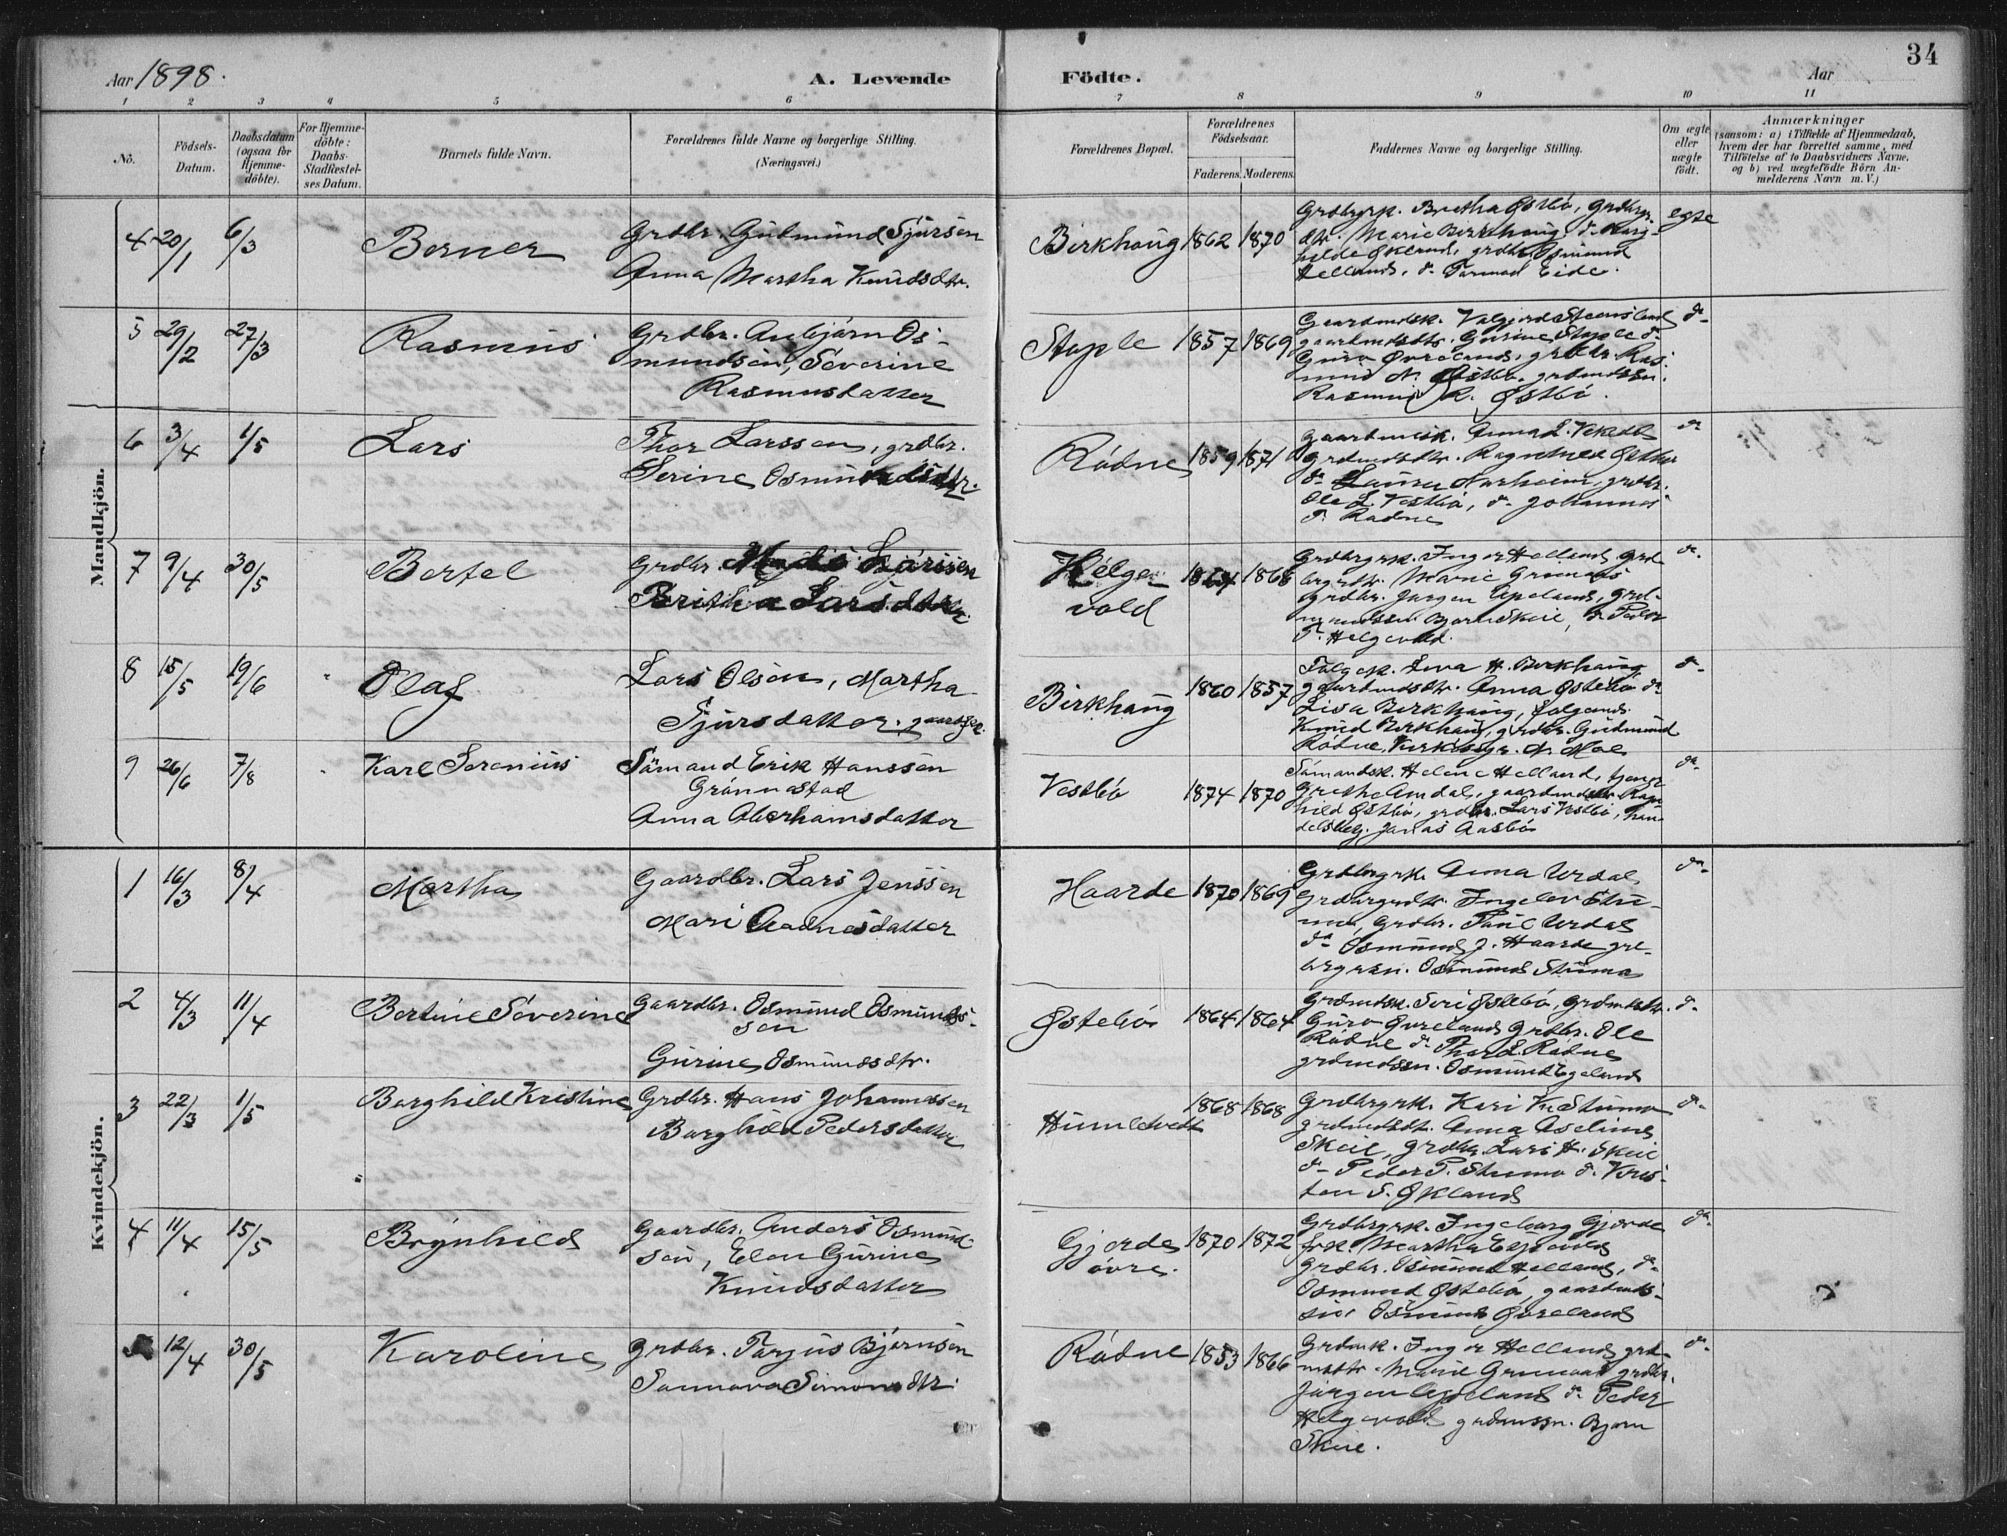 34
Aar 1898.
A. Levende
Födte.
Aar
1 2 3 4 5 6 7 8 9 10 11
No.
Födsels-
Datum.
Daabsdatum
(ogsaa for
Hjemme-
döbte).
For Hjemme-
döbte:
Daabs-
Stadfæstel-
ses Datum.
Barnets fulde Navn.
Forældrenes fulde Navne og borgerlige Stilling.
(Næringsvei.)
Forældrenes Bopæl.
Forældrenes
Födselsaar.
Faderens. Moderens.
Faddernes Navne og borgerlige Stilling.
Om ægte
eller
uægte
födt.
Anmærkninger
(saasom: a) i Tilfælde af Hjemmedaab,
hvem der har forrettet samme, med
Tilföielse af to Daabsvidners Navne,
og b) ved uægtefödte Börn An-
melderens Navn m. V.)
Mandkjön.
4 20/1 6/3 Berner
Grdbr. Gudmund Sjursen
Anna Martha Knudsdtr.
Birkhaug 1862 1870
Grdbrgrk. Bretha Østbö, grdbrgr.
dtr. Marie Birkhaug, do Rag-
hilde Økland, grdbr. Osmund
Helland, do Tormod Eide.
egte
5 29/2 27/3 Rasmus
Grdbr. Anbjörn Os-
mundsen, Severine
Rasmusdatter
Stople 1857 1869
Gaardmdsk. Valgjerd Steensland
gaardmdsdtr. Gurine Stople do
Guro Øvreland, grdbr. Ras-
mus N. Østbö, grdmdssn.
Rasmus R. Østbö.
do
6 3/4 1/5 Lars
Thor Larssen, grdbr.
Serine Osmundsdtr.
Rödne 1859 1871
Gaardmdsk. Anna L. Vestbö
grdmdsdtr. Ragnhild Østbö
do Laura Aarheim, grdbr.
Ole L. Vestbö, do Johannes
T. Rödne
do
7 9/4 30/5 Bertel
Grdbr.
Beritha Larsdtr.
Helge-
vold
1864 1868
Grdbrgrk. Inger Helland, grd-
brgrdtr. Marie Grönnaas
grdbr. Jörgen Apeland, grd-
mandssen Bjorn Skeie, do Peder
T. Helgevold.
do
8 15/5 19/6 Olaf
Lars Olsen, Martha
Sjursdatter, gaardfol.
Birkhaug 1860 1857
Folgek. Lena H. Birkhaug
gaardmdsdtr. Anna Østebö do
Lisa Birkhaug, folgemd.
Knud Birkhaug, grdbr. Gudmund
Rödne, Kirkesgr. N. Moe
do
9 26/6 7/8 Karl Serenius
Sömand Erik Hanssen
Grönnestad
Anna Abrahamsdatter
Vestbö 1874 1870
Sömandsk. Helene Helland, tjenpg.
Grethe Amdal, gaardmdsdtr. Ragn-
hild Østbö, grdbr. Lars Vestbö, han-
delsbetj. Jonas Aasbö
do
Kvindekjön.
1 16/3 8/4 Martha
Gaardbr. Lars Jenssen
Mari Aadnesdatter
Haarde 1870 1869
Grdbrgrk. Anna Urdal
Grdbrgrdtr. Ingeborg Stu-
mo, grdbr. Paul Urdal
do Osmund J. Haarde grd-
brgrsn. Osmund Stumo
do
2 4/3 11/4 Bertine Severine
Gaardbr. Osmund Osmunds-
sen
Gurine Osmundsdtr.
Østebö 1864 1864
Grdmdsk. Siri Østebö, grdmdsdtr.
Guro Øvreland grdbr. Ole
Rödne do Thor L. Rödne
grdmdssn. Osmund Egeland
do
3 22/3 1/5 Borghild Kristine
Grdbr. Hans Johannessen
Borghild Pedersdatter
Humletvedt
1868 1868
Grdbrgrk. Kari Kr. Stumo
grdmdsdt. Anna Aseline
Skeie, grdbr. Lars H. Skeie
do Peder P. Stumo do Kris-
ten S. Økland
do
4 11/4 15/5 Brynhild
Gaardbr. Anders Osmund-
sen, Elen Gurine
Knudsdatter
Gjerde
övre.
1870 1872
Grdbrgrk. Ingeborg Gjerde
frk. Martha Espevold
grdbr. Osmund Helland, do
Osmund Østebö, gaardmds-
sön Osmund Øvreland
do
5 12/4 30/5 Karoline
Grdbr. Torjus Bjørnsen
Sannova Simonsdtr.
Rödne 1853 1866
Grdmk. Inger Helland grd-
mdsdtr. Marie Grönnaas grdbr.
Jörgen Apeland do Peder
Helgevold grdmssn. Bjorn
Skeie.
do